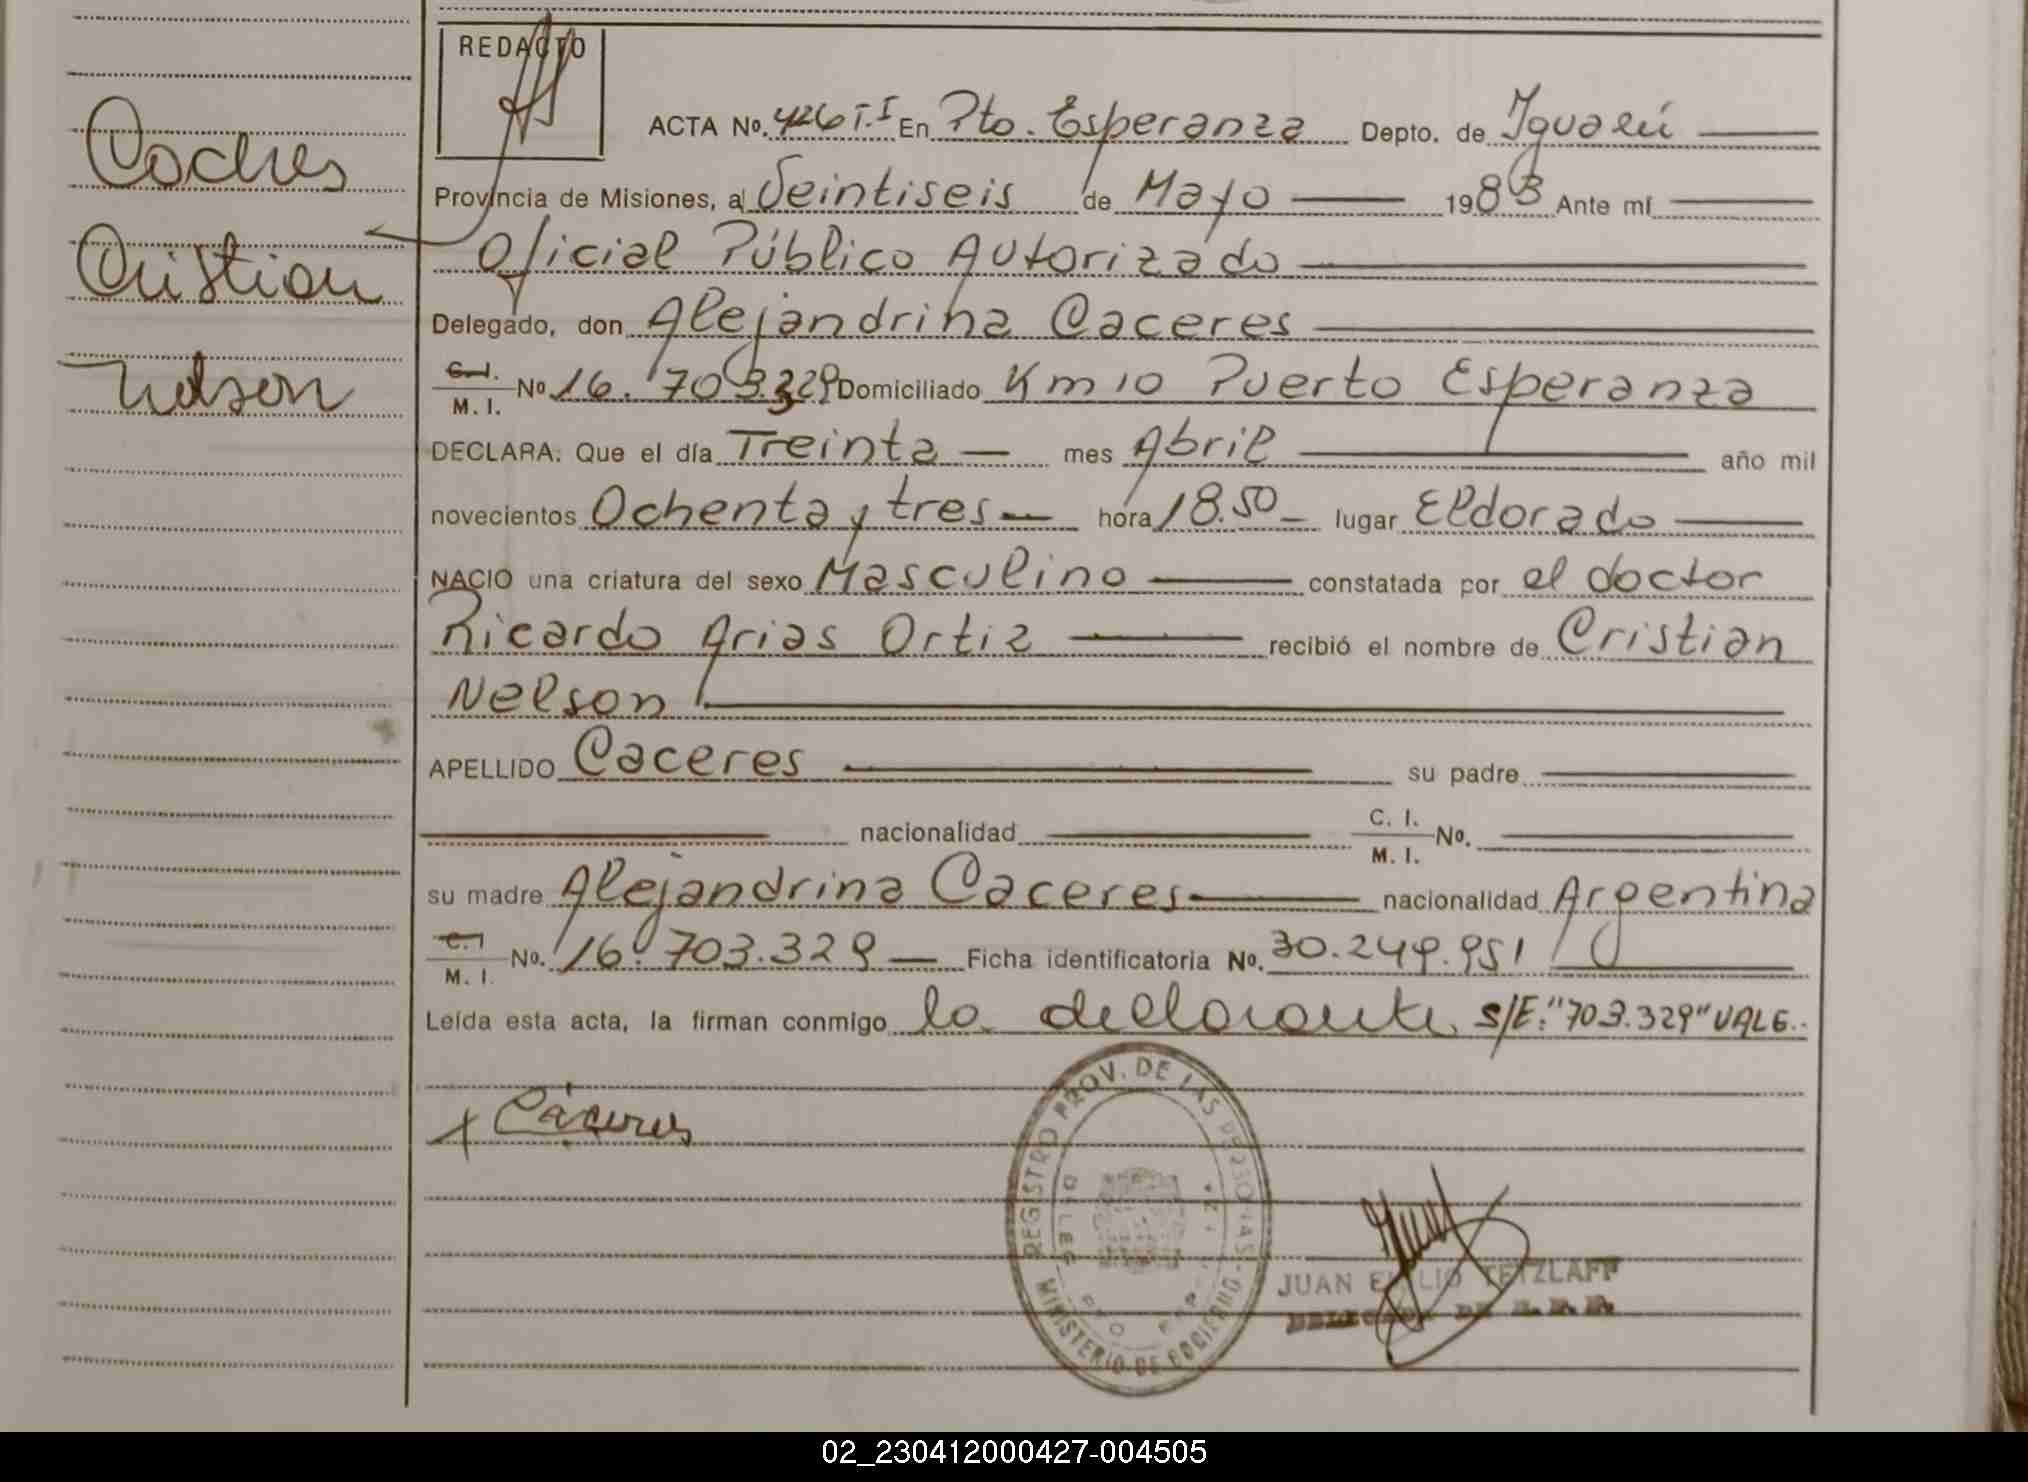 REDACTO
ACTA No. 426 T.I En Pto. Esperanza Depto. de Iguazú
Provincia de Misiones, a Veintiseis de Mayo 1983 Ante mí
Oficial Público Autorizado
Delegado, don Alejandrina Caceres
C.I. M. I. No 16.703.329 Domiciliado Km 10 Puerto Esperanza
DECLARA: Que el día Treinta mes Abril año mil
novecientos Ochenta y tres hora 18.50 lugar Eldorado
NACIO una criatura del sexo Masculino constatada por el doctor
Ricardo Arias Ortiz recibió el nombre de Cristian
Nelson
APELLIDO Caceres su padre
nacionalidad C. I. M. I. No.
su madre Alejandrina Caceres nacionalidad Argentina
C.I M. I. No. 16.703.329 Ficha identificatoria No. 30.249.951
Leída esta acta, la firman conmigo la declarante S/E: "703.329" VALE.
Cáceres
REGISTRO PROV. DE LAS PERSONAS
MINISTERIO DE GOBIERNO
JUAN EMILIO TETZLAFF
Caceres
Cristian
Nelson
02_230412000427-004505